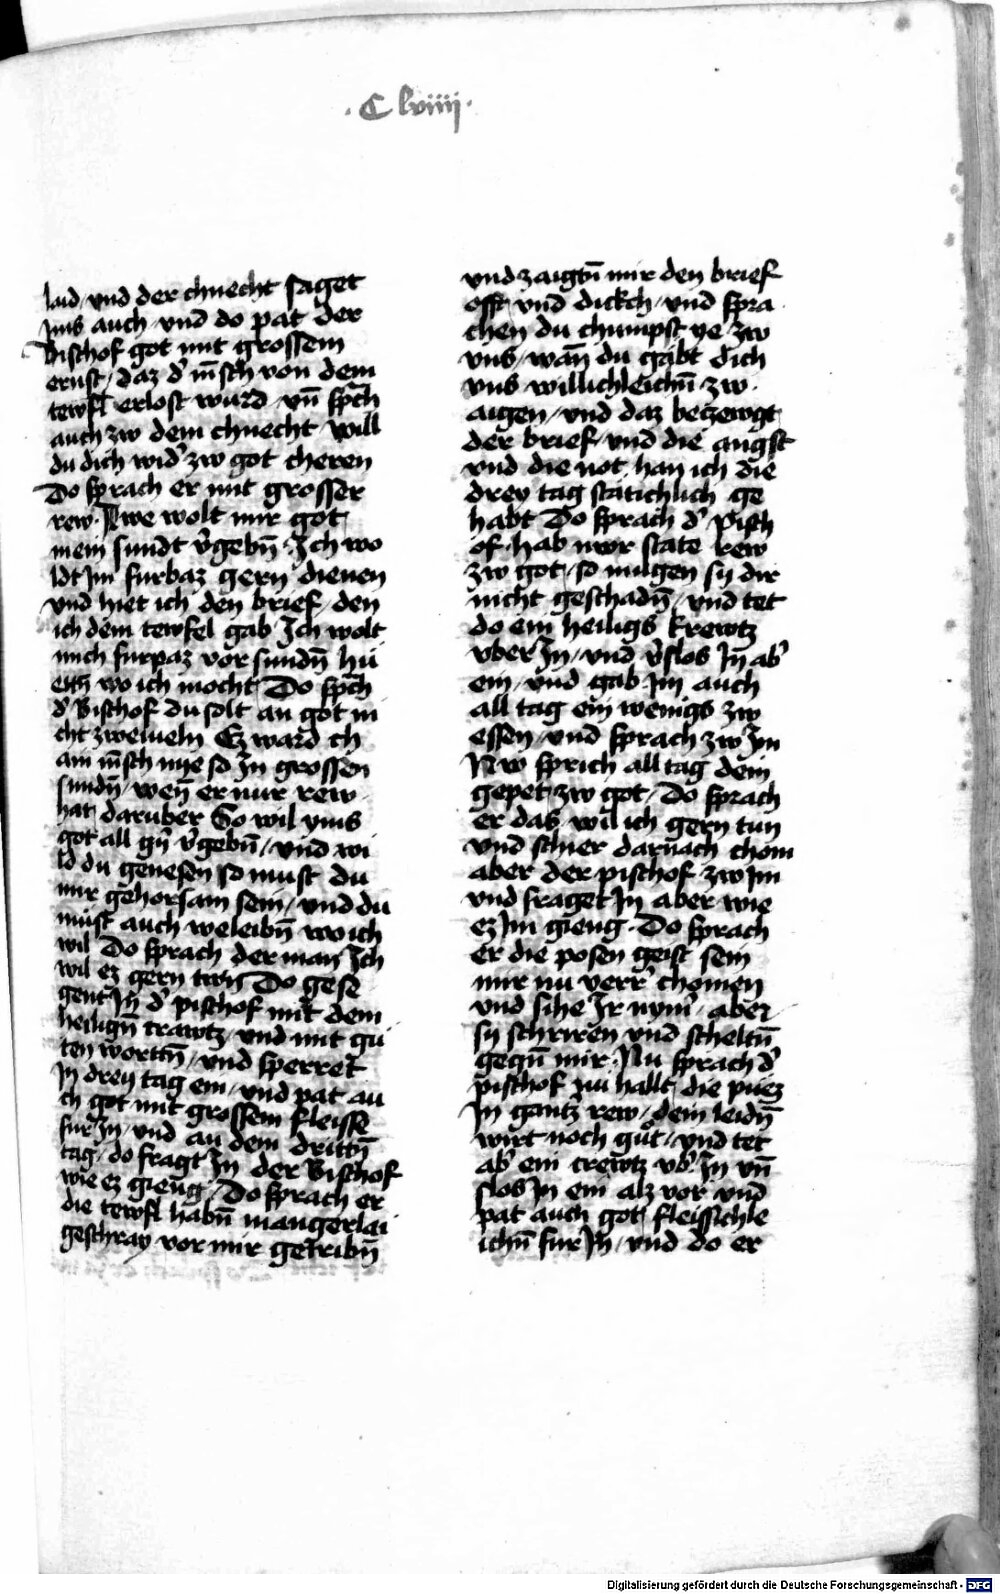 · C lviiij ·
laid / vnd der chnecht saget
yms auch / vnd do pat der
Bischof got mit grossem
ernst / daz d' m̄sch von dem
tewfl erlost wurd vn̄ sp̄ch
auch zw dem chnecht / will
du dich wid' zw got cheren
Do sprach er mit grosser
rew · Awe wolt mir got
mein sundt v'gebn̄ · Ich wo
ldt Im furbaz gern dienen
vnd hiet ich den brief / den
ich dem tewfel gab Ich wolt
mich furpaz vor sundn̄ hü
ettn̄ wo ich mocht Do sp̄ch
d' Bischof du solt an got ni
cht zweiueln Ez ward ch
ain m̄sch nye so In grossen
sundn̄ / wen̄ er nur rew
hat daruber So wil yms
got all gn̄ v'gebn̄ / vnd wi
ld du genesen so must du
mir gehorsam sein / vnd du
must auch weleibn̄ wo ich
wil Do sprach der man Ich
wil ez gern twn Do gese
gent In d' pischof mit dem
heilign̄ crawtz / vnd mit gu
ten worttn̄ / vnd sperret
In drey tag ein / vnd pat au
ch got mit grossem fleisse
fur In / vnd an dem drittn̄
tag / do fragt In der Bischof
wie ez gieng / Do sprach er
die tewfl habn̄ mangerlai
geschray vor mir getribn̄
vnd zaigtn̄ mir den brief
offt / vnd dickch / vnd spra
chen du chumpst ye / zw
vns / wan̄ du gabt dich
vns willichleichn̄ zw ·
aigen / vnd daz beczewgt
der brief / vnd die angst
vnd die not han ich die
drey tag statichlich ge
habt Do sprach d' Pisch
of / hab nwr state rew
zw got / so mugen sy dir
nicht geschadn̄ / vnd tet
do ein heiligs krewtz
vber In / vnd v'slos In ab'
ein / vnd gab Im auch
all tag ein wenigs zw
essen / vnd sprach zw Im
Nw sprich all tag dein
gepet zw got / Do sprach
er das wil ich gern tun
vnd schier darnach chom
aber der pischof zw Im
vnd fraget In aber wie
ez Im gieng · Do sprach
er die posen geist sein
mir nu verr' chomen
vnd sihe Ir nym' aber
sy schriren vnd scheltn̄
gegn̄ mir · Nu sprach d'
pischof nu hallt die puez
In gantz rew / dem leidn̄
wirt noch gůt / vnd tet
ab' ein crewtz vb' In vn̄
slos In ein alz vor vnd
pat auch got fleissichle
ichn̄ fur In / vnd do er
Digitalisierung gefördert durch die Deutsche Forschungsgemeinschaft - DFG